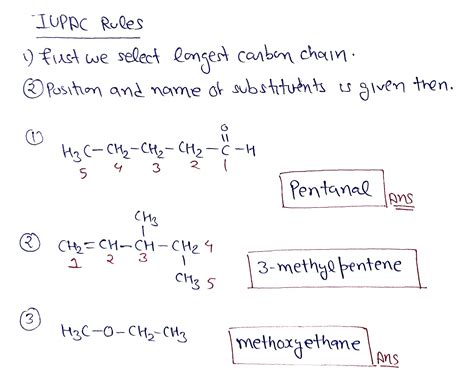 IUPAC Rules
1) first we select longest carbon chain.
② Position and name of substituents is given then.
①
O
||
H₃C-CH₂-CH₂-CH₂-C-H
5 4 3 2 1
Pentanal Ans
CH₃
② CH₂=CH-CH-CH₂ 4
1 2 3
CH₃ 5
3-methylpentene
③
H₃C-O-CH₂-CH₃
methoxyethane Ans